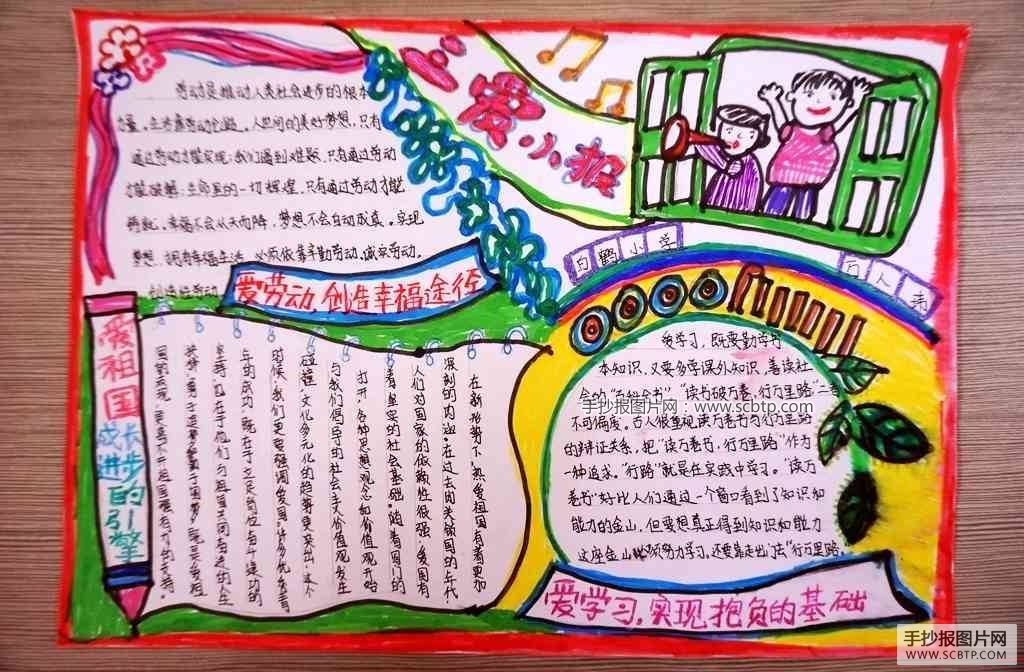 三爱小报
白鹤小学
劳动是推动人类社会进步的根本
力量。生活靠劳动创造。人世间的美好梦想,只有
通过劳动才能实现;我们遇到难题,只有通过劳动
才能破解;生命里的一切辉煌,只有通过劳动才能
铸就。幸福不会从天而降,梦想不会自动成真。实现
梦想,拥有幸福生活,必须依靠辛勤劳动、诚实劳动、
创造性劳动
爱劳动,创造幸福途径
爱祖国
成长
进步
的
引擎
在新形势下,热爱祖国有着更加
深刻的内涵。在过去闭关锁国的年代,
人们对国家的依赖性很强,爱国有
着坚实的社会基础。随着国门的
打开,各种思想观念和价值观开始
与我们倡导的社会主义价值观发生
碰撞,文化多元化的趋势更突出。这个
时候,我们更要强调爱国。许多优秀青
年的成功,既在于立足岗位奋斗建功的
幸运,也在于他们与祖国共同奋进的人生
爱学习,既要勤学书
本知识,又要多学课外知识,善读社
会的“百姓全书”。“读书破万卷,行万里路”二者
不可偏废。古人很重视读万卷书与行万里路
的辩证关系,把“读万卷书,行万里路”作为
一种追求。“行路”就是在实践中学习。“读万
卷书”好比人们通过一个窗口看到了知识和
能力的金山,但要想真正得到知识和能力
这座金山必须努力学习,还要靠走出门去“行万里路。
爱学习,实现抱负的基础
手抄报图片网:www.scbtp.com
手抄报图片网
WWW.SCBTP.COM